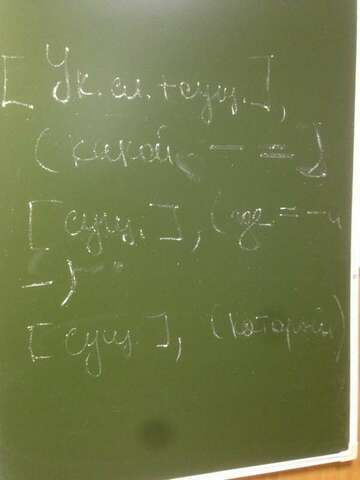 [ Ук. сл. + сущ. ],
( какой — = )
[ сущ. ], ( где = — и
— )
[ сущ. ], ( который )